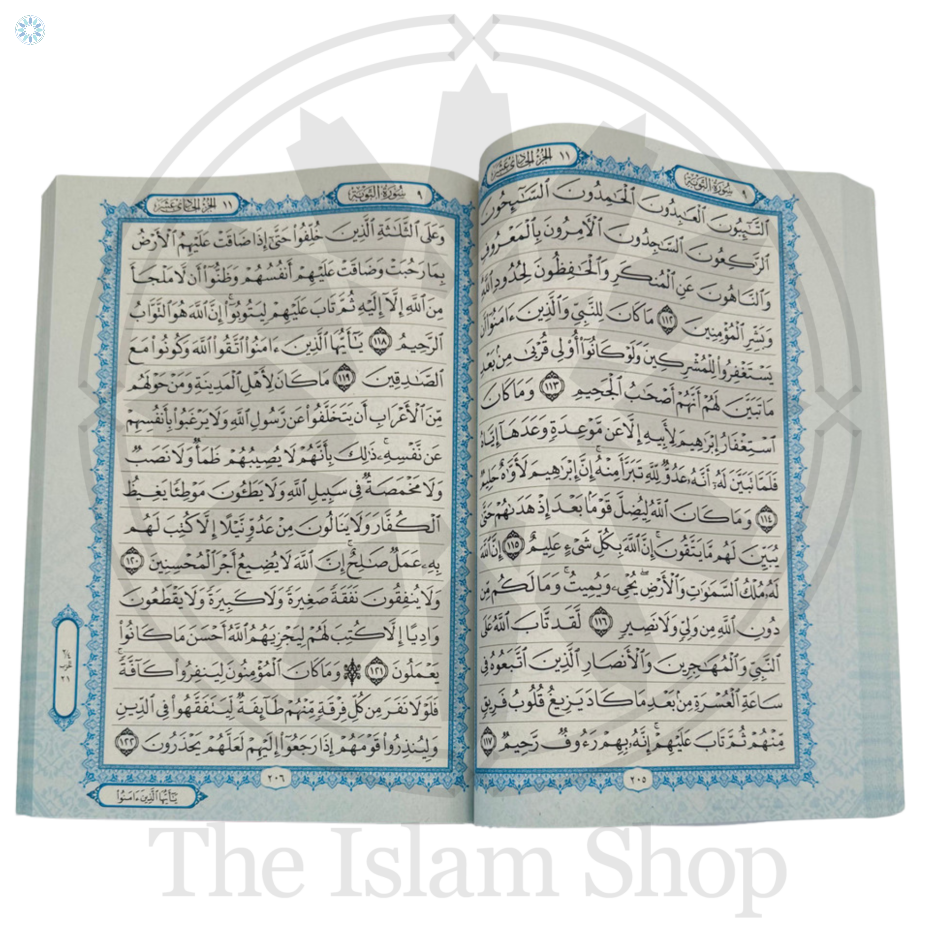 ١١ الجزء الحادي عشر
سورة التوبة ٩
ٱلتَّـٰٓئِبُونَ ٱلۡعَـٰبِدُونَ ٱلۡحَـٰمِدُونَ ٱلسَّـٰٓئِحُونَ
ٱلرَّٰكِعُونَ ٱلسَّـٰجِدُونَ ٱلۡأٓمِرُونَ بِٱلۡمَعۡرُوفِ
وَٱلنَّاهُونَ عَنِ ٱلۡمُنكَرِ وَٱلۡحَـٰفِظُونَ لِحُدُودِ ٱللَّهِۗ
وَبَشِّرِ ٱلۡمُؤۡمِنِينَ ١١٢ مَا كَانَ لِلنَّبِيِّ وَٱلَّذِينَ ءَامَنُوٓاْ أَن
يَسۡتَغۡفِرُواْ لِلۡمُشۡرِكِينَ وَلَوۡ كَانُوٓاْ أُوْلِي قُرۡبَىٰ مِنۢ بَعۡدِ
مَا تَبَيَّنَ لَهُمۡ أَنَّهُمۡ أَصۡحَـٰبُ ٱلۡجَحِيمِ ١١٣ وَمَا كَانَ
ٱسۡتِغۡفَارُ إِبۡرَٰهِيمَ لِأَبِيهِ إِلَّا عَن مَّوۡعِدَةٖ وَعَدَهَآ إِيَّاهُ
فَلَمَّا تَبَيَّنَ لَهُۥٓ أَنَّهُۥ عَدُوّٞ لِّلَّهِ تَبَرَّأَ مِنۡهُۚ إِنَّ إِبۡرَٰهِيمَ لَأَوَّٰهٌ حَلِيمٞ
١١٤ وَمَا كَانَ ٱللَّهُ لِيُضِلَّ قَوۡمَۢا بَعۡدَ إِذۡ هَدَىٰهُمۡ حَتَّىٰ
يُبَيِّنَ لَهُم مَّا يَتَّقُونَۚ إِنَّ ٱللَّهَ بِكُلِّ شَيۡءٍ عَلِيمٌ ١١٥ إِنَّ ٱللَّهَ
لَهُۥ مُلۡكُ ٱلسَّمَـٰوَٰتِ وَٱلۡأَرۡضِۖ يُحۡيِۦ وَيُمِيتُۚ وَمَا لَكُم مِّن
دُونِ ٱللَّهِ مِن وَلِيّٖ وَلَا نَصِيرٖ ١١٦ لَّقَد تَّابَ ٱللَّهُ عَلَى
ٱلنَّبِيِّ وَٱلۡمُهَـٰجِرِينَ وَٱلۡأَنصَارِ ٱلَّذِينَ ٱتَّبَعُوهُ فِي
سَاعَةِ ٱلۡعُسۡرَةِ مِنۢ بَعۡدِ مَا كَادَ يَزِيغُ قُلُوبُ فَرِيقٖ
مِّنۡهُمۡ ثُمَّ تَابَ عَلَيۡهِمۡۚ إِنَّهُۥ بِهِمۡ رَءُوفٞ رَّحِيمٞ ١١٧
٢٠٥
سورة التوبة ٩
١١ الجزء الحادي عشر
وَعَلَى ٱلثَّلَـٰثَةِ ٱلَّذِينَ خُلِّفُواْ حَتَّىٰٓ إِذَا ضَاقَتۡ عَلَيۡهِمُ ٱلۡأَرۡضُ
بِمَا رَحُبَتۡ وَضَاقَتۡ عَلَيۡهِمۡ أَنفُسُهُمۡ وَظَنُّوٓاْ أَن لَّا مَلۡجَأَ
مِنَ ٱللَّهِ إِلَّآ إِلَيۡهِ ثُمَّ تَابَ عَلَيۡهِمۡ لِيَتُوبُوٓاْۚ إِنَّ ٱللَّهَ هُوَ ٱلتَّوَّابُ
ٱلرَّحِيمُ ١١٨ يَـٰٓأَيُّهَا ٱلَّذِينَ ءَامَنُواْ ٱتَّقُواْ ٱللَّهَ وَكُونُواْ مَعَ
ٱلصَّـٰدِقِينَ ١١٩ مَا كَانَ لِأَهۡلِ ٱلۡمَدِينَةِ وَمَنۡ حَوۡلَهُم
مِّنَ ٱلۡأَعۡرَابِ أَن يَتَخَلَّفُواْ عَن رَّسُولِ ٱللَّهِ وَلَا يَرۡغَبُواْ بِأَنفُسِهِمۡ
عَن نَّفۡسِهِۦۚ ذَٰلِكَ بِأَنَّهُمۡ لَا يُصِيبُهُمۡ ظَمَأٞ وَلَا نَصَبٞ
وَلَا مَخۡمَصَةٞ فِي سَبِيلِ ٱللَّهِ وَلَا يَطَـُٔونَ مَوۡطِئٗا يَغِيظُ
ٱلۡكُفَّارَ وَلَا يَنَالُونَ مِنۡ عَدُوّٖ نَّيۡلًا إِلَّا كُتِبَ لَهُم
بِهِۦ عَمَلٞ صَـٰلِحٌۚ إِنَّ ٱللَّهَ لَا يُضِيعُ أَجۡرَ ٱلۡمُحۡسِنِينَ ١٢٠
وَلَا يُنفِقُونَ نَفَقَةٗ صَغِيرَةٗ وَلَا كَبِيرَةٗ وَلَا يَقۡطَعُونَ
وَادِيًا إِلَّا كُتِبَ لَهُمۡ لِيَجۡزِيَهُمُ ٱللَّهُ أَحۡسَنَ مَا كَانُواْ
يَعۡمَلُونَ ١٢١ ۞ وَمَا كَانَ ٱلۡمُؤۡمِنُونَ لِيَنفِرُواْ كَآفَّةٗۚ
فَلَوۡلَا نَفَرَ مِن كُلِّ فِرۡقَةٖ مِّنۡهُمۡ طَآئِفَةٞ لِّيَتَفَقَّهُواْ فِي ٱلدِّينِ
وَلِيُنذِرُواْ قَوۡمَهُمۡ إِذَا رَجَعُوٓاْ إِلَيۡهِمۡ لَعَلَّهُمۡ يَحۡذَرُونَ ١٢٢
٢٠٦
يَـٰٓأَيُّهَا ٱلَّذِينَ ءَامَنُواْ
٢١
The Islam Shop